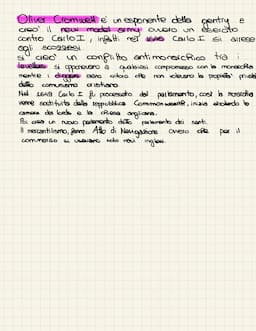 Oliver Cromwell è un esponente della gentry e
creo' il new model army ovvero un esercito
contro Carlo I, infatti nel Carlo I si arrese
agli scozzesi
si creo' un conflitto antimonarchico tra i
levellers si opponevano a qualsiasi compromesso con la monarchia
mentre i diggers erano coloro che non volevano la proprietà privata
detto comunismo cristiano
Nel 1649 Carlo I fu processato dal parlamento, così la monarchia
venne sostituita dalla repubblica Commonwealth, inizia abolendo la
camera dei lords e la chiesa anglicana.
Poi creo un nuovo parlamento detto parlamento dei santi.
Il mercantilismo, firmo Atto di Navigazione ovvero che per il
commercio si usavano solo navi inglesi.